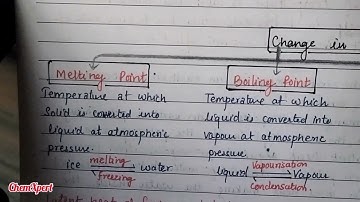 Change in
Melting Point.
Temperature at which
Solid is coverted into
liquid at atmospheric
pressure.
ice melting water
freezing
Boiling Point
Temperature at which
liquid is converted into
vapour at atmospheric
pressure.
liquid Vapourisation Vapour
condensation.
ChemXpert